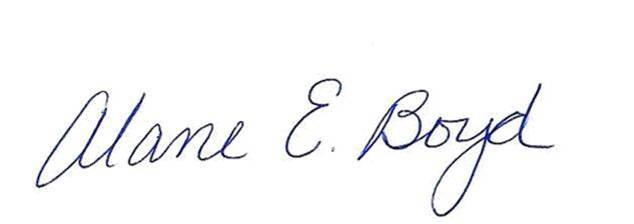 Alane E. Boyd